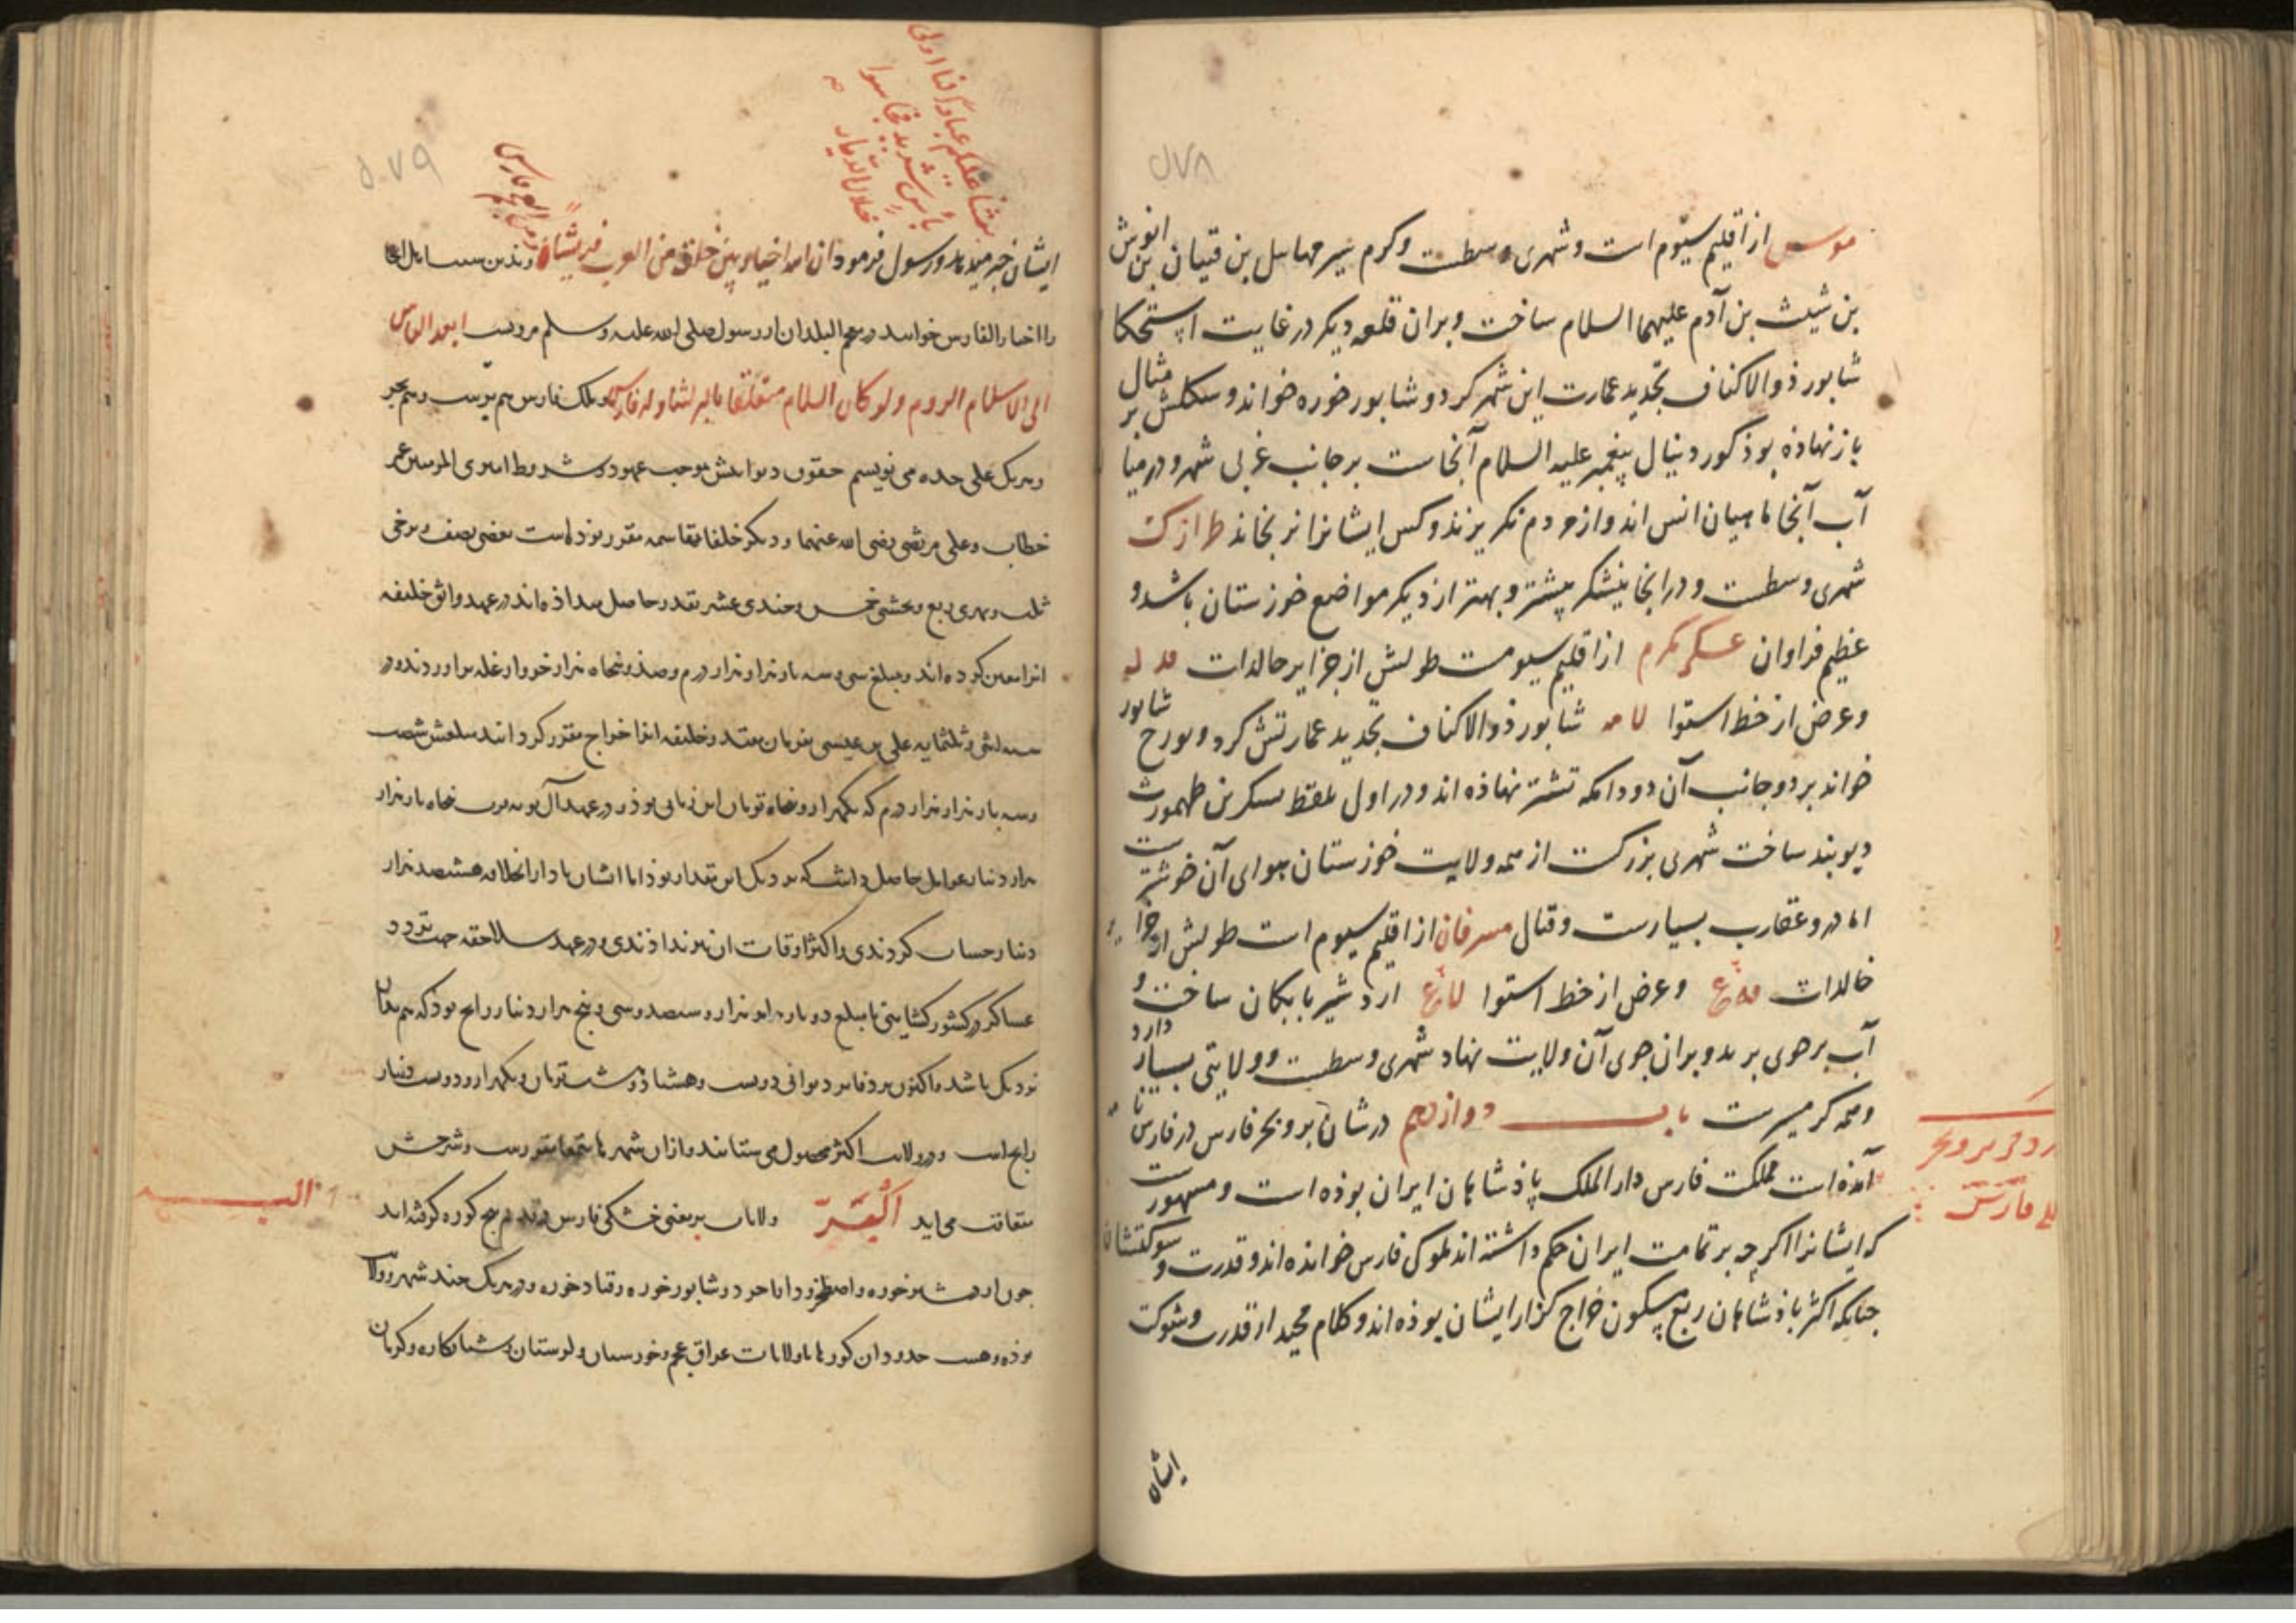 ۵۷۸
سوس از اقلیم سیوم است و شهری وسطست و کرم سیر مهاییل بن قتیان بن انوش
بن شیث بن آدم علیهما السلام ساخت و بران قلعه دیکر در غایت استحکا
شابور ذو الاکناف تجدید عمارت این شهر کرد و شابور خوره خواند و شکلش بر مثال
باز نهاذه بوذ کور دنیال پیغمبر علیه السلام آنجاست بر جانب غربی شهر و در میا
آب آنجا ماهیان انس اند و از مردم نکریزند و کس ایشانرا نرنجاند طرازک
شهری وسطست و در انجا نیشکر بیشتر و بهتر از دیکر مواضع خوزستان باشد و
عظیم فراوان عسکر مکرم از اقلیم سیومست طولش از جزایر خالدات فد له
و عرض از خط استوا لا مه شابور ذو الاکناف تجدید عمارتش کرد و برج شابور
خواند بر دو جانب آن دودانکه تشتر نهاذه اند و در اول لشکر بن طهمورث
دیوبند ساخت شهری بزرکست از همه ولایت خوزستان هوای آن خوشترست
اما درو عقارب بسیارست و قتال مسرقان از اقلیم سیوم است طولش از جزا
خالدات و عرض از خط استوا اردشیر بابکان ساخت و
آب بر جوی برید و بران جوی آن ولایت نهاد شهری وسطست و ولایتی بسیار دارد
و همه کرمسیرست باب دوازدهم در شان بر و بحر فارس در فارس نا
آمذه است مملکت فارس دار الملک پاذشاهان ایران بوذه است و مشهورست
که ایشانرا اکر چه بر تمامت ایران حکم داشته اند ملوک فارس خوانده اند و قدرت و شوکتشان
جنانکه اکثر باذشاهان ربع مسکون خراج کزار ایشان بوذه اند و کلام مجید از قدرت و شوکت
ایشان
بر و بحر
فارس
۵۷۹
بعثنا علیکم عبادا لنا اولی
باس شدید فجاسوا
خلال الدیار
ایشان خبر میدهد و رسول فرمود ان لله اخیار بین خلقه من العرب قریشا و
را اخیار الفارس خوانند در معجم البلدان از رسول صلی الله علیه و سلم مرویست ابعد الناس
الی الاسلام الروم و لو کان السلام متعلقا بالثریا لتناوله فارس و ملک فارس هم برست و هم بحر
و هر یک علی حده می نویسم حقوق دیوانیش بموجب عهود و شروط امیر المومنین عمر
خطاب و علی مرتضی رضی الله عنهما و دیکر خلفا بمقاسمه مقرر بوده است بعضی نصف و برخی
ثلث و بهری ربع و بخشی خمس و چندی عشر بقدر حاصل میداذه اند در عهد واثق خلیفه
انرا معین کرده اند و مبلغ سی و سه بار هزار هزار درم و صد و پنجاه هزار خروار غله براوردند و در
سنه اثنی و ثلثمایه علی بن عیسی بفرمان مقتدر خلیفه انرا خراج مقرر کردانید مبلغش شصت
و سه بار هزار هزار درم که یکهزار و پنجاه تومان این زمانی بوذ و در عهد آل بویه پنجاه بار هزار
هزار دینار عوامل حاصل داشت که نزدیک این مقدار بوذ اما ایشان با دار الخلافه هشتصد هزار
دینار حساب کردندی و اکثر اوقات ان نیز نداذندی و در عهد سلاجقه جهت تردد
عساکر و کشور کشایی تا مبلغ دو بار هزار هزار و سیصد و سی و پنج هزار دینار رایج بوذ که هم بدان
نزدیک باشد و اکنون بر دفاتر دیوانی دویست و هشتاد و شش تومان و یکهزار و دویست دینار
رایج است و در ولایت اکثر محصول می ستانند و ازان شهرها بتمغا مقررست و شرحش
متعاقب می اید اَلْبَرّ ولایات بر یعنی خشکی فارس در قدیم پنج کوره کرفته اند
چون اردشیر خوره و اصطخر و دارابجرد و شابور خوره و قباد خوره و در هر یک چند شهر و ولا
بوذه و هست حدود ان کورها با ولایات عراق عجم و خوزستان و لرستان و شبانکاره و کرمان
البر